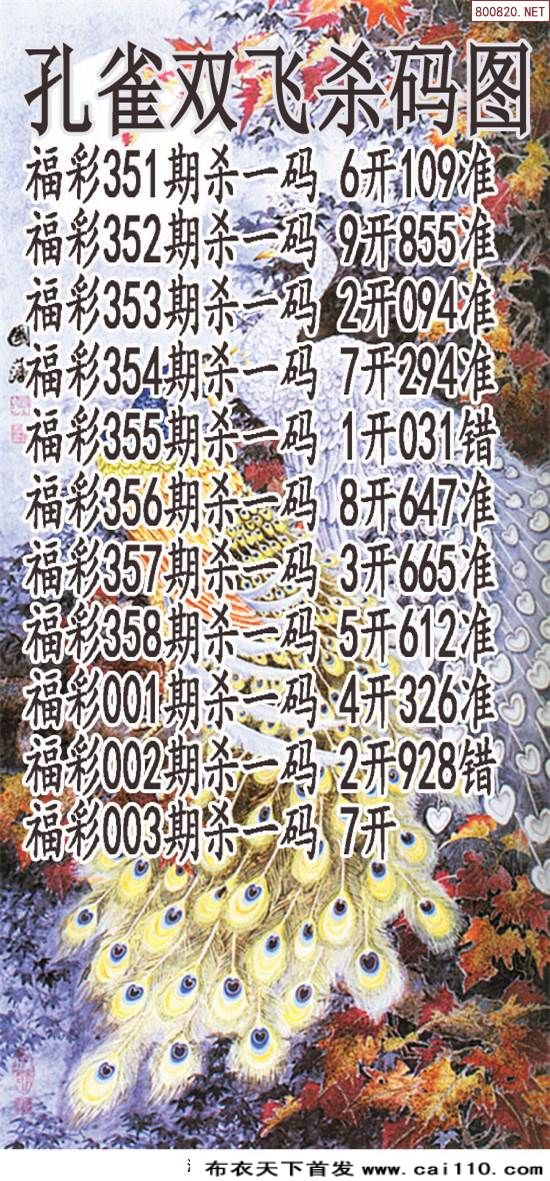 800820.NET
孔雀双飞杀码图
福彩351期杀一码 6开109准
福彩352期杀一码 9开855准
福彩353期杀一码 2开094准
福彩354期杀一码 7开294准
福彩355期杀一码 1开031错
福彩356期杀一码 8开647准
福彩357期杀一码 3开665准
福彩358期杀一码 5开612准
福彩001期杀一码 4开326准
福彩002期杀一码 2开928错
福彩003期杀一码 7开
布衣天下首发 www.cai110.com